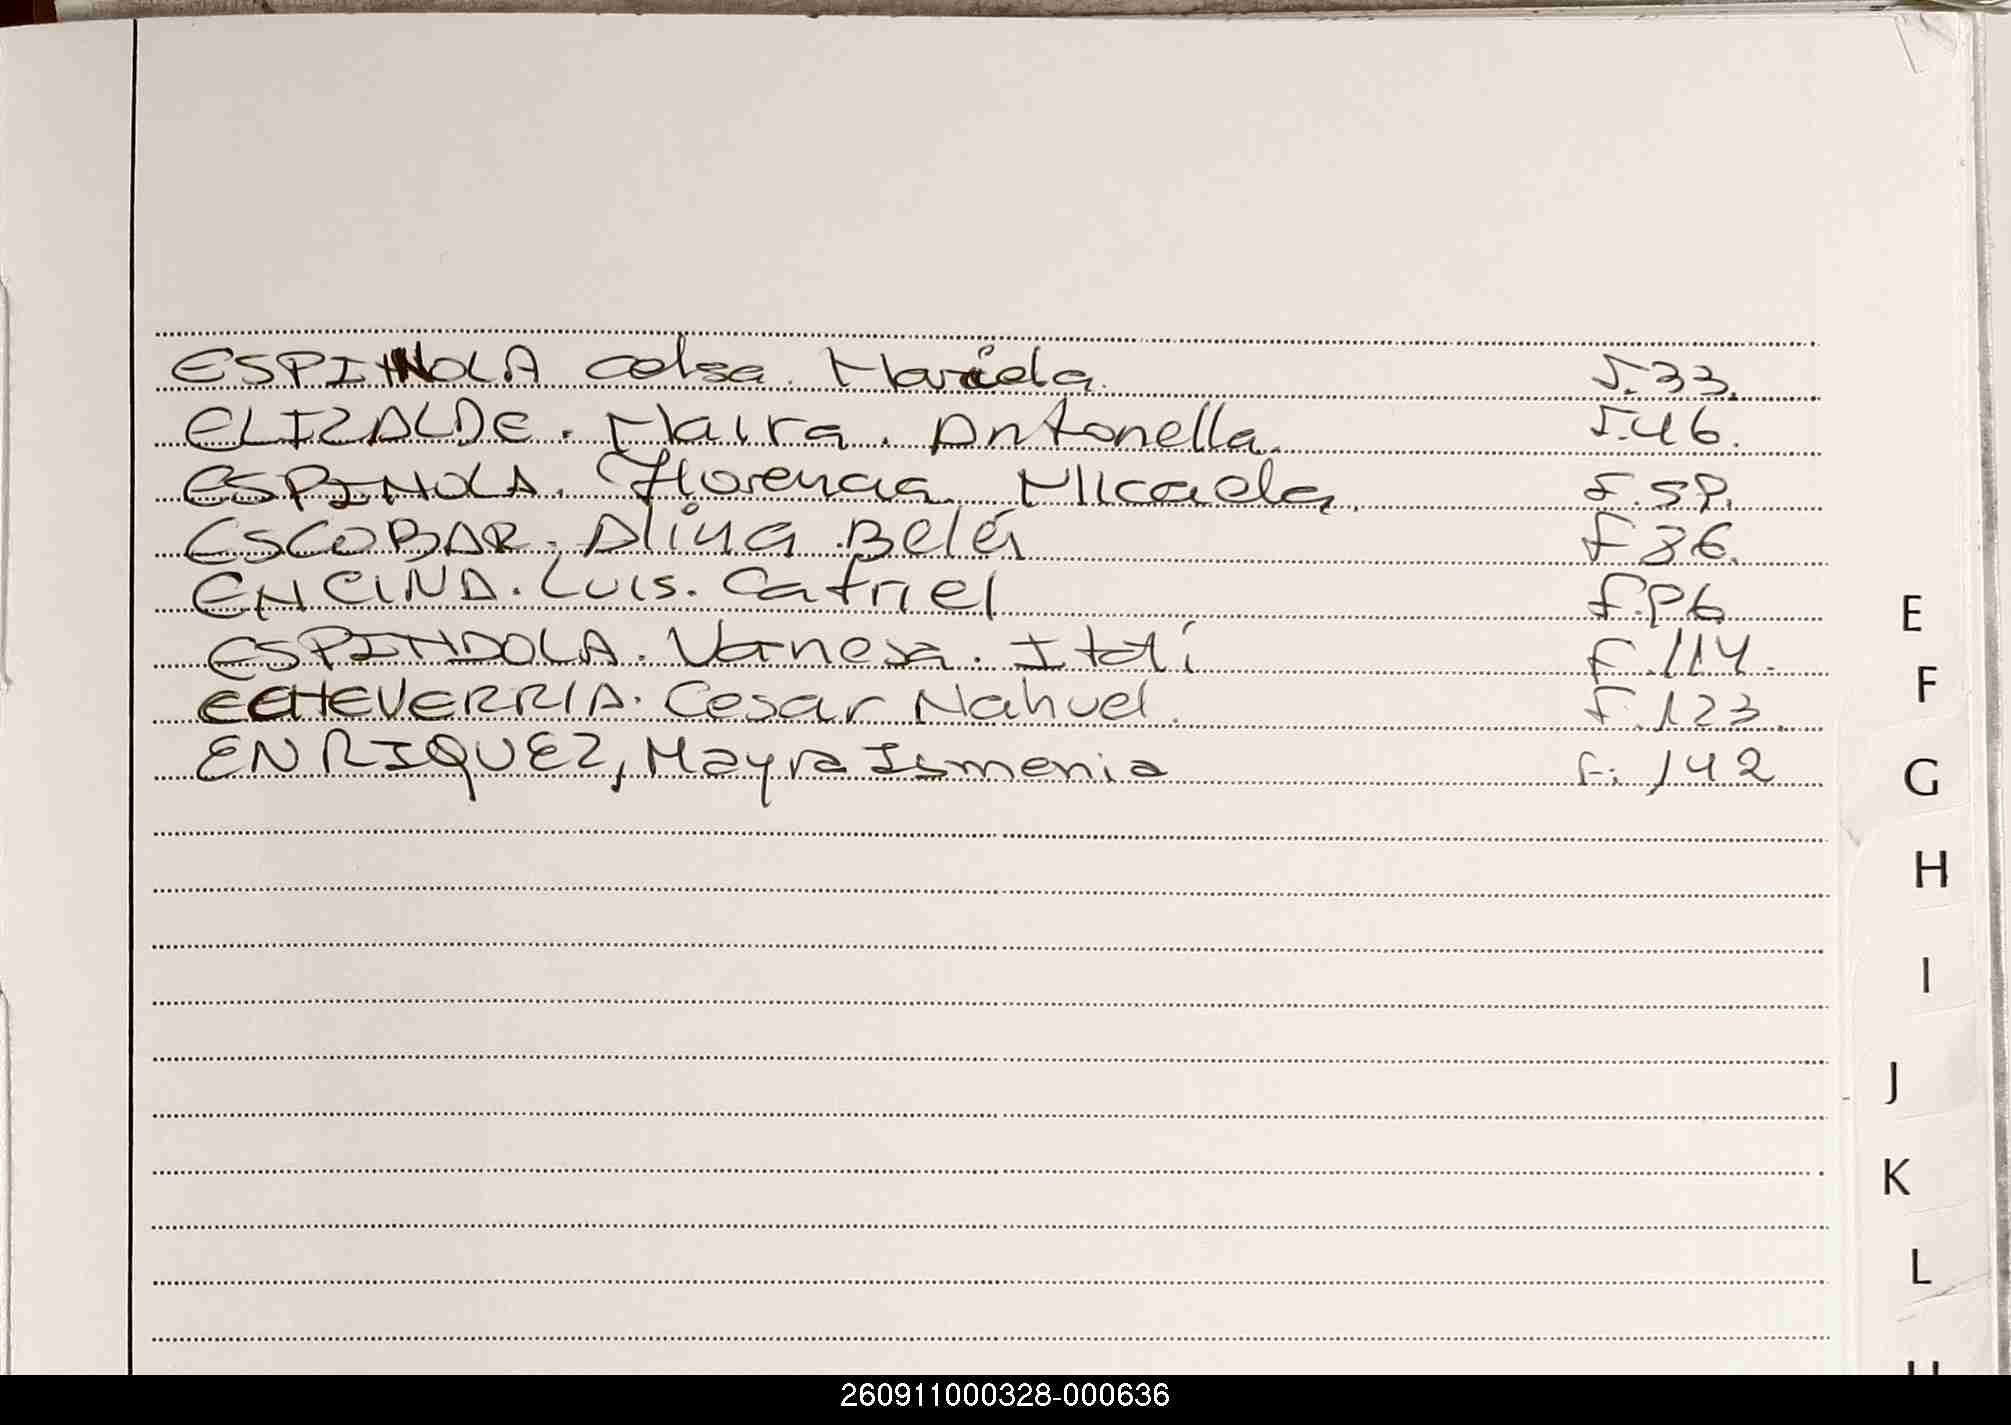 ESPINOLA Celsa. Mariela. F.33.
ELIZALDE. Maira. Antonella. F.46.
ESPINOLA. Florencia Micaela. F.59.
ESCOBAR. Alina Belén F 86.
ENCINA. Luis. Catriel F.96
ESPINDOLA. Vanesa. Itatí F.114.
ECHEVERRIA. Cesar Nahuel. F.123.
ENRIQUEZ, Mayra Ismenia F. 142
E
F
G
H
I
J
K
L
260911000328-000636